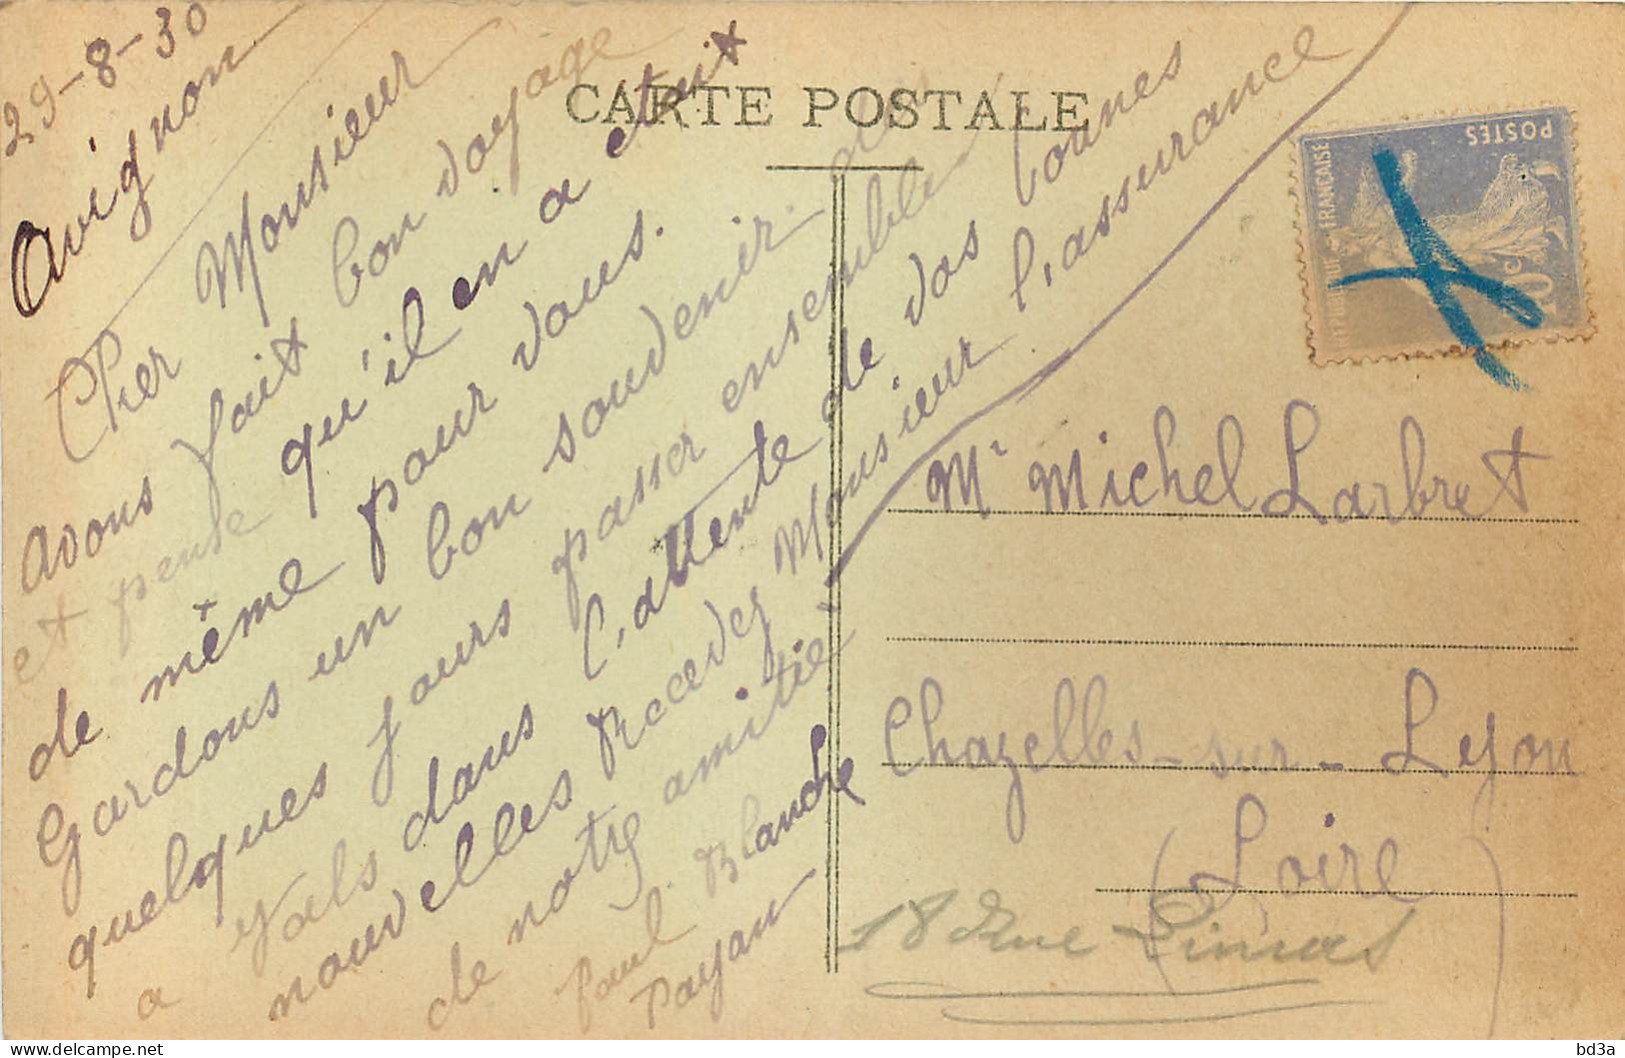 29-8-30
Avignon
Cher Monsieur
avons fait bon voyage
et pense qu'il en a etait
de même pour vous.
Gardons un bon souvenir des
quelques jours passer ensemble
a Vals dans l'attente de vos bonnes
nouvelles Recevez Monsieur l'assurance
de notre amitié
Paul Blanche
Payan
CARTE POSTALE
POSTES
FRANÇAISE
Mr Michel Larbret
Chazelles-sur-Lyon
(Loire)
18 Rue
bd3a